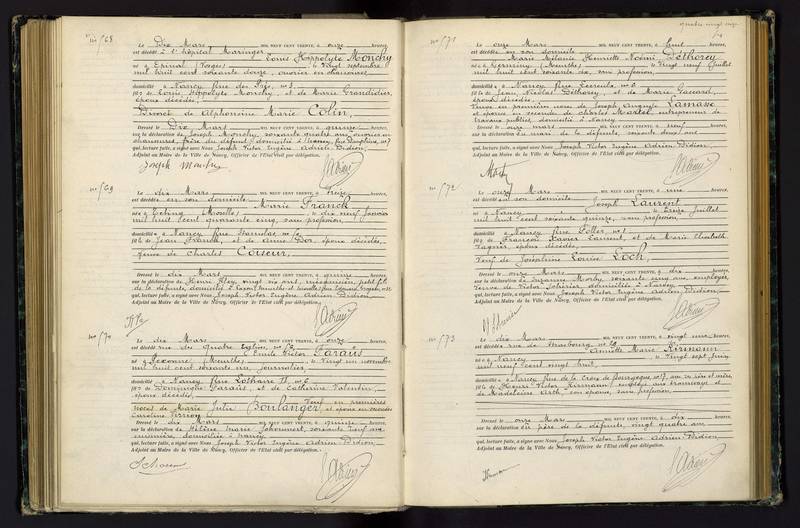 No 568
Le Dix Mars MIL NEUF CENT TRENTE, à onze heures,
est décédé à l'hôpital Maringer
Louis Hippolyte Monchy
né à Epinal (Vosges), le vingt septembre
mil huit cent soixante douze, ouvrier en chaussures,
domicilié à Nancy, Rue des Prés, no 3
fils de Louis Hippolyte Monchy, et de Marie Grandidier,
époux décédés,
Divorcé de Alphonsine Marie Colin,
Dressé le Dix Mars à quinze heures,
sur la déclaration de Joseph Monchy, soixante quatre ans, ouvrier en
chaussures, frère du défunt, domicilié à Nancy, Rue
qui, lecture faite, a signé avec Nous Joseph Victor Eugène Adrien Didion,
Adjoint au Maire de la Ville de Nancy, Officier de l'Etat civil par délégation.
Joseph Monchy
No 569
Le dix Mars MIL NEUF CENT TRENTE, à treize heures,
est décédée en son domicile
Marie Franck
née à (Moselle), le dix neuf Janvier
mil huit cent quarante cinq, sans profession,
domiciliée à Nancy Rue Stanislas, no
fille de Jean Franck, et de Anne époux décédés,
Veuve de Charles Coiseur,
Dressé le dix Mars à quinze heures,
sur la déclaration de Henri vingt six ans, mécanicien, petit fils
de la défunte, domicilié à
qui, lecture faite, a signé avec Nous Joseph Victor Eugène Adrien Didion,
Adjoint au Maire de la Ville de Nancy, Officier de l'Etat civil par délégation.
No 570
Le dix Mars MIL NEUF CENT TRENTE, à onze heures,
est décédé rue des Quatre Eglises, no
Emile Victor Parais
né à (Meurthe), le vingt un novembre
mil huit cent soixante un, journalier,
domicilié à Nancy Rue Lothaire II no 6
fils de Dominique Parais et de Catherine Valentin,
époux décédés, Veuf en premières
noces de Marie Julie Boulanger et époux en secondes
Caroline
Dressé le dix Mars à quinze heures,
sur la déclaration de Hélène Marie soixante neuf ans
domiciliée à Nancy
qui, lecture faite, a signé avec Nous Joseph Victor Eugène Adrien Didion
Adjoint au Maire de la Ville de Nancy, Officier de l'Etat civil par délégation.
quatre vingt onze
No 571
Le onze Mars MIL NEUF CENT TRENTE, à huit heures,
est décédée en son domicile
Marie Mélanie Henriette Noémi Dethorey
née à (Meurthe), le vingt neuf Juillet
mil huit cent soixante dix, sans profession,
domiciliée à Nancy Rue no 6
fille de Jean Nicolas Dethorey, et de Marie
époux décédés,
Veuve en premières noces de Joseph Lamasse
et épouse en secondes de Charles Martel, entrepreneur de
travaux publics, domicilié à Nancy
Dressé le onze mars à neuf heures,
sur la déclaration du mari de la défunte, soixante deux ans
qui, lecture faite, a signé avec Nous Joseph Victor Eugène Adrien Didion,
Adjoint au Maire de la Ville de Nancy, Officier de l'Etat civil par délégation.
No 572
Le onze Mars MIL NEUF CENT TRENTE, à une heure,
est décédé en son domicile
Joseph Laurent
né à Nancy, le treize Juillet
mil huit cent soixante quinze, sans profession,
domicilié à Nancy Rue Coller, no 1
fils de François Xavier Laurent, et de Marie Elisabeth
époux décédés,
Veuf de Joséphine Louise Loch,
Dressé le onze Mars à dix heures,
sur la déclaration de Suzanne soixante cinq ans, employée,
Veuve de Victor domiciliée à Nancy
qui, lecture faite, a signé avec Nous Joseph Victor Eugène Adrien Didion,
Adjoint au Maire de la Ville de Nancy, Officier de l'Etat civil par délégation.
No 573
Le dix Mars MIL NEUF CENT TRENTE, à vingt une heures,
est décédée rue de Strasbourg, no
Annette Marie Kirmann
née à Nancy, le vingt sept Juin
mil neuf cent vingt huit,
domiciliée à Nancy, Rue de la Croix de Bourgogne, no 17, avec ses père et mère,
fille de Henri Victor Kirmann, employé aux tramways et
de Madeleine Arth, son épouse, sans profession
Dressé le onze Mars à dix heures,
sur la déclaration du père de la défunte, vingt quatre ans
qui, lecture faite, a signé avec Nous Joseph Victor Eugène Adrien Didion
Adjoint au Maire de la Ville de Nancy, Officier de l'Etat civil par délégation.